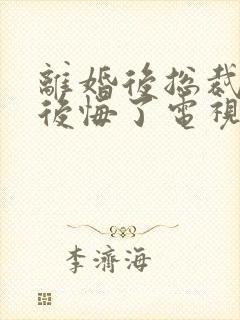 離婚後總裁
後悔了電視
李濟海